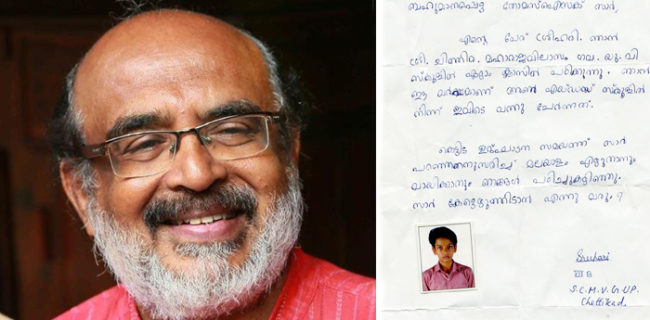 ബഹുമാനപ്പെട്ട തോമസ്ഐസക് സാർ,
എന്റെ പേര് ശ്രീഹരി. ഞാൻ
ശ്രീ. ചിത്തിര. മഹാരാജവിലാസം ഗവ. യു. പി
സ്കൂളിൽ ഏഴാം ക്ലാസിൽ പഠിക്കുന്നു. ഞാൻ
ഈ വർഷമാണ് അൺ എയ്ഡഡ് സ്കൂളിൽ
നിന്ന് ഇവിടെ വന്നു ചേർന്നത്.
കെട്ടിട ഉദ്ഘാടന സമയത്ത് സാർ
പറഞ്ഞതനുസരിച്ച് മലയാളം എഴുതാനും
വായിക്കാനും ഞങ്ങൾ പഠിച്ചുകഴിഞ്ഞു.
സാർ കേട്ടെഴുത്തിടാൻ എന്നു വരും ?
Sreehari
VII B
S.C.M.V.G.UP.
Chettikad.